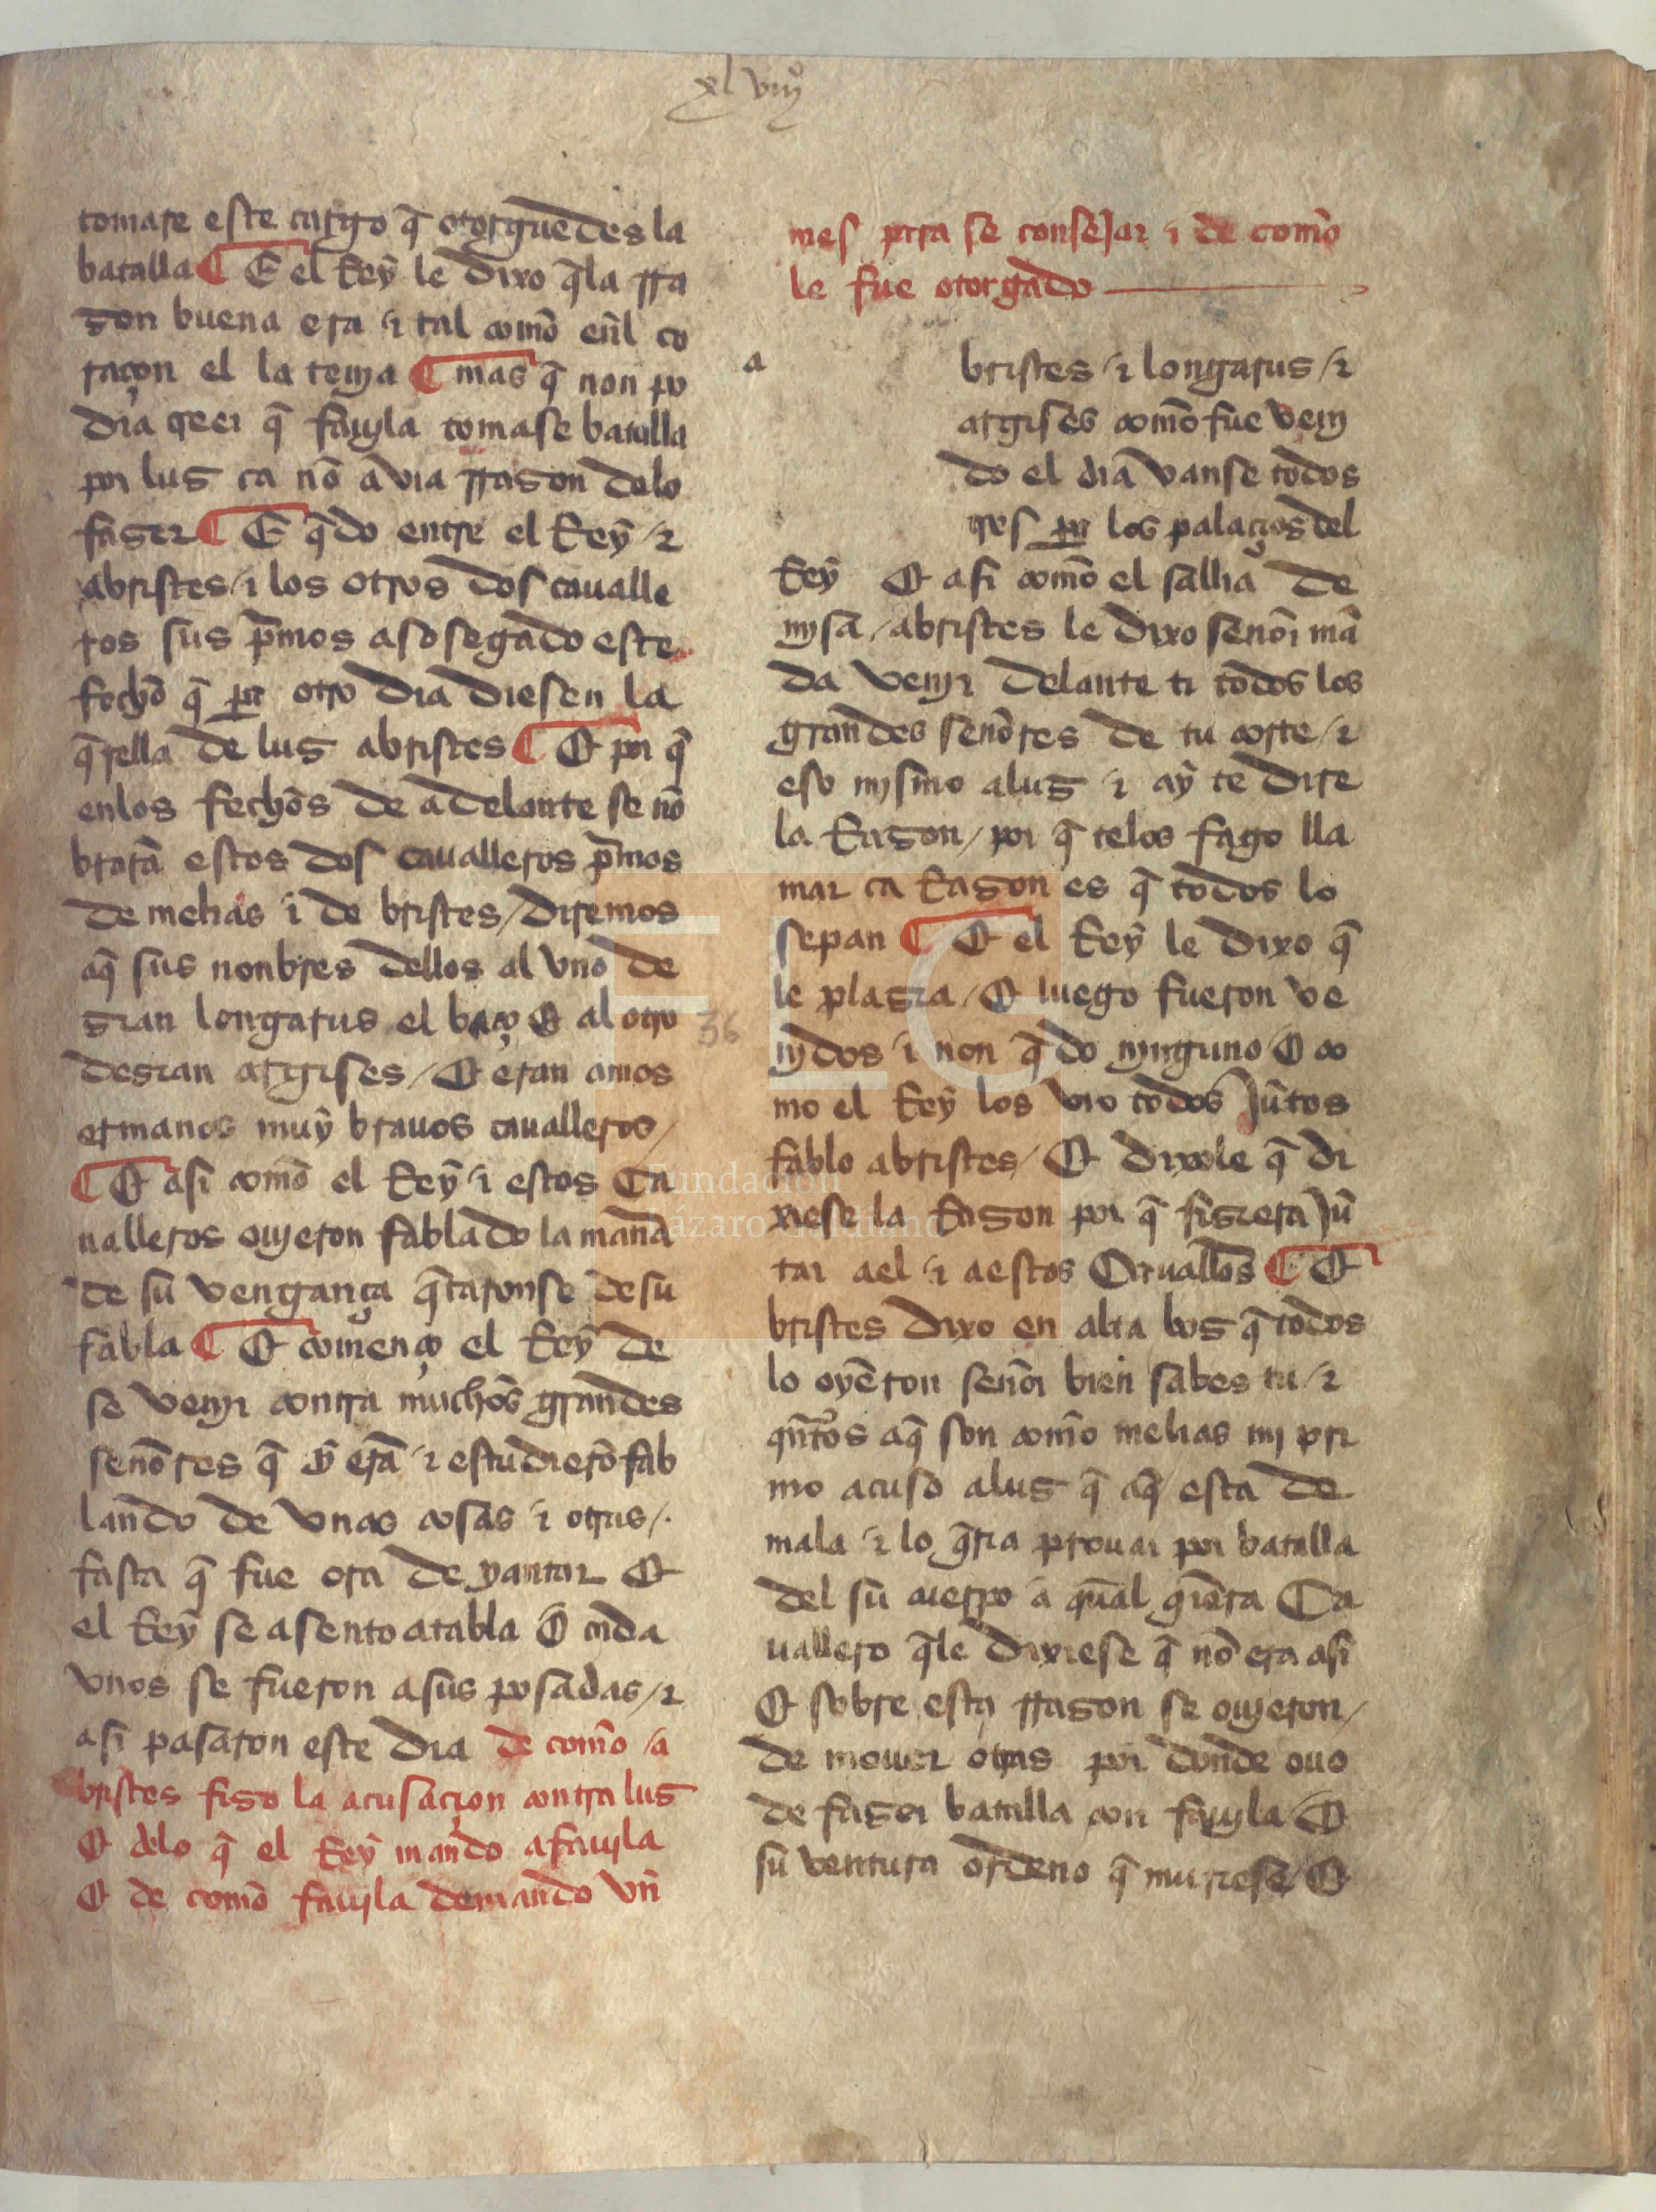 xlviijº
tomare este cargo q̃ otorguedes la
batalla ¶ E el Rey le dixo q̃la rra
zon buena era ⁊ tal comõ eñl co
raçon el la tenja ¶ mas q̃ non po
dia creer q̃ fauyla tomase batalla
por luz ca nõ avia rrazon delo
fazer ¶ E q̃do entre el Rey ⁊
abristes ⁊ los otros dos caualle
ros sus p̃mos asosegado este
fechõ q̃ pa otro dia diesen la
q̃rella de luz abristes ¶ Et por q̃
enlos fechõs de adelante se nõ
brarã estos dos caualleros p̃mos
de melias ⁊ de bristes / diremos
aq̃ sus nonbres dellos al vno de
zian longarus el baço Et al otro
dezian argises / Et eran amos
ermanos muy brauos caualleros /
¶ Et asi comõ el Rey ⁊ estos ca
ualleros ouјeron fablado la manã
de su vengança q̃taronse de su
fabla ¶ Et començo el Rey de
se venjr contra muchõs grandes
senõres q̃ y erã ⁊ estudierõ fab
lando de vnas cosas ⁊ otras /.
fasta q̃ fue ora de yantar Et
el Rey se asento atabla Et cada
vnos se fueron asus posadas / ⁊
asi pasaron este dia de comõ a
bristes fizo la acusaçion contra luz
Et delo q̃ el Rey mando a fauyla
Et de comõ fauyla demando vñ
mes para se consejar ⁊ de comõ
le fue otorgado
a
bristes ⁊ longarus / ⁊
argises comõ fue venj
do el dia vanse todos
tres pa los palaçios del
Rey Et asi comõ el sallia de
mjsa / abristes le dixo senõr mã
da venjr delante ti todos los
grandes senõres de tu corte / ⁊
eso mjsmo aluz ⁊ ay te dire
la Razon / por q̃ telos fago lla
mar ca Razon es q̃ todos lo
sepan ¶ Et el Rey le dixo q̃
le plazia / Et luego fueron ve
njdos ⁊ non q̃do njnguno Et co
mo el Rey los vio todos jũtos
fablo abristes / Et dixole q̃ di
xiese la Razon por q̃ fiziera jũ
tar ael ⁊ aestos Cauallos ¶ Et
bristes dixo en alta boz q̃ todos
lo oyerõn senõr bien sabes tu / ⁊
q̃ntos aq̃ son comõ melias mj pri
mo acuso aluz q̃ aq̃ esta de
mala ⁊ lo q̃ria prouar por batalla
del su cuerpo a qual q̃era Ca
uallero q̃le dixiese q̃ nõ era asi
Et sobre esta rrazon se ouјeron /
de mouer otras por donde ouo
de fazer batalla con fauyla Et
su ventura ordeno q̃ muriese / Et
36
FLG
Fundación
Lázaro Galdiano